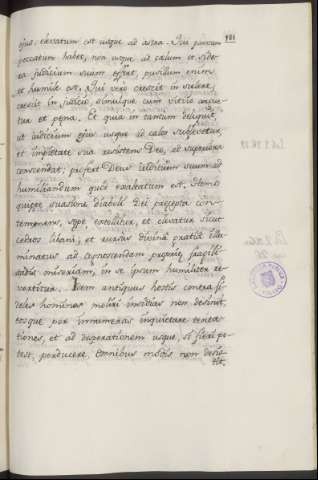 181
ejus, elevatum est usque ad astra. Qui parvum
peccatum habet, non usque ad cœlum et side-
ra judicium suum effert, pusillum enim
et humile est. Qui vero crescit in scelere,
crescit in judicio, simulque cum vitio auge-
tur et pena. Et quia in tantum deliquit,
ut judicium ejus usque ad cœlos subjectetur,
et impietate sua resistens Deo, ad superiora
conscendat; profert Deus judicium suum ad
humiliandum quod exaltatum est. Homo
quippe suasione diaboli Dei præcepta con-
temnens, sæpe extollitur, et elevatur sicut
cedros libani, et rursus divina gratia illu-
minatus ad agnoscendam propriæ fragili-
tatis miseriam, in se ipsum humiliter re-
vertitur. Idem antiquus hostis contra fi-
deles homines moliri insidias non desinit,
eosque per innumeras inquietare tenta-
tiones, et ad desperationem usque, si fieri po-
test, perducere omnibus modis non desis-
tit.